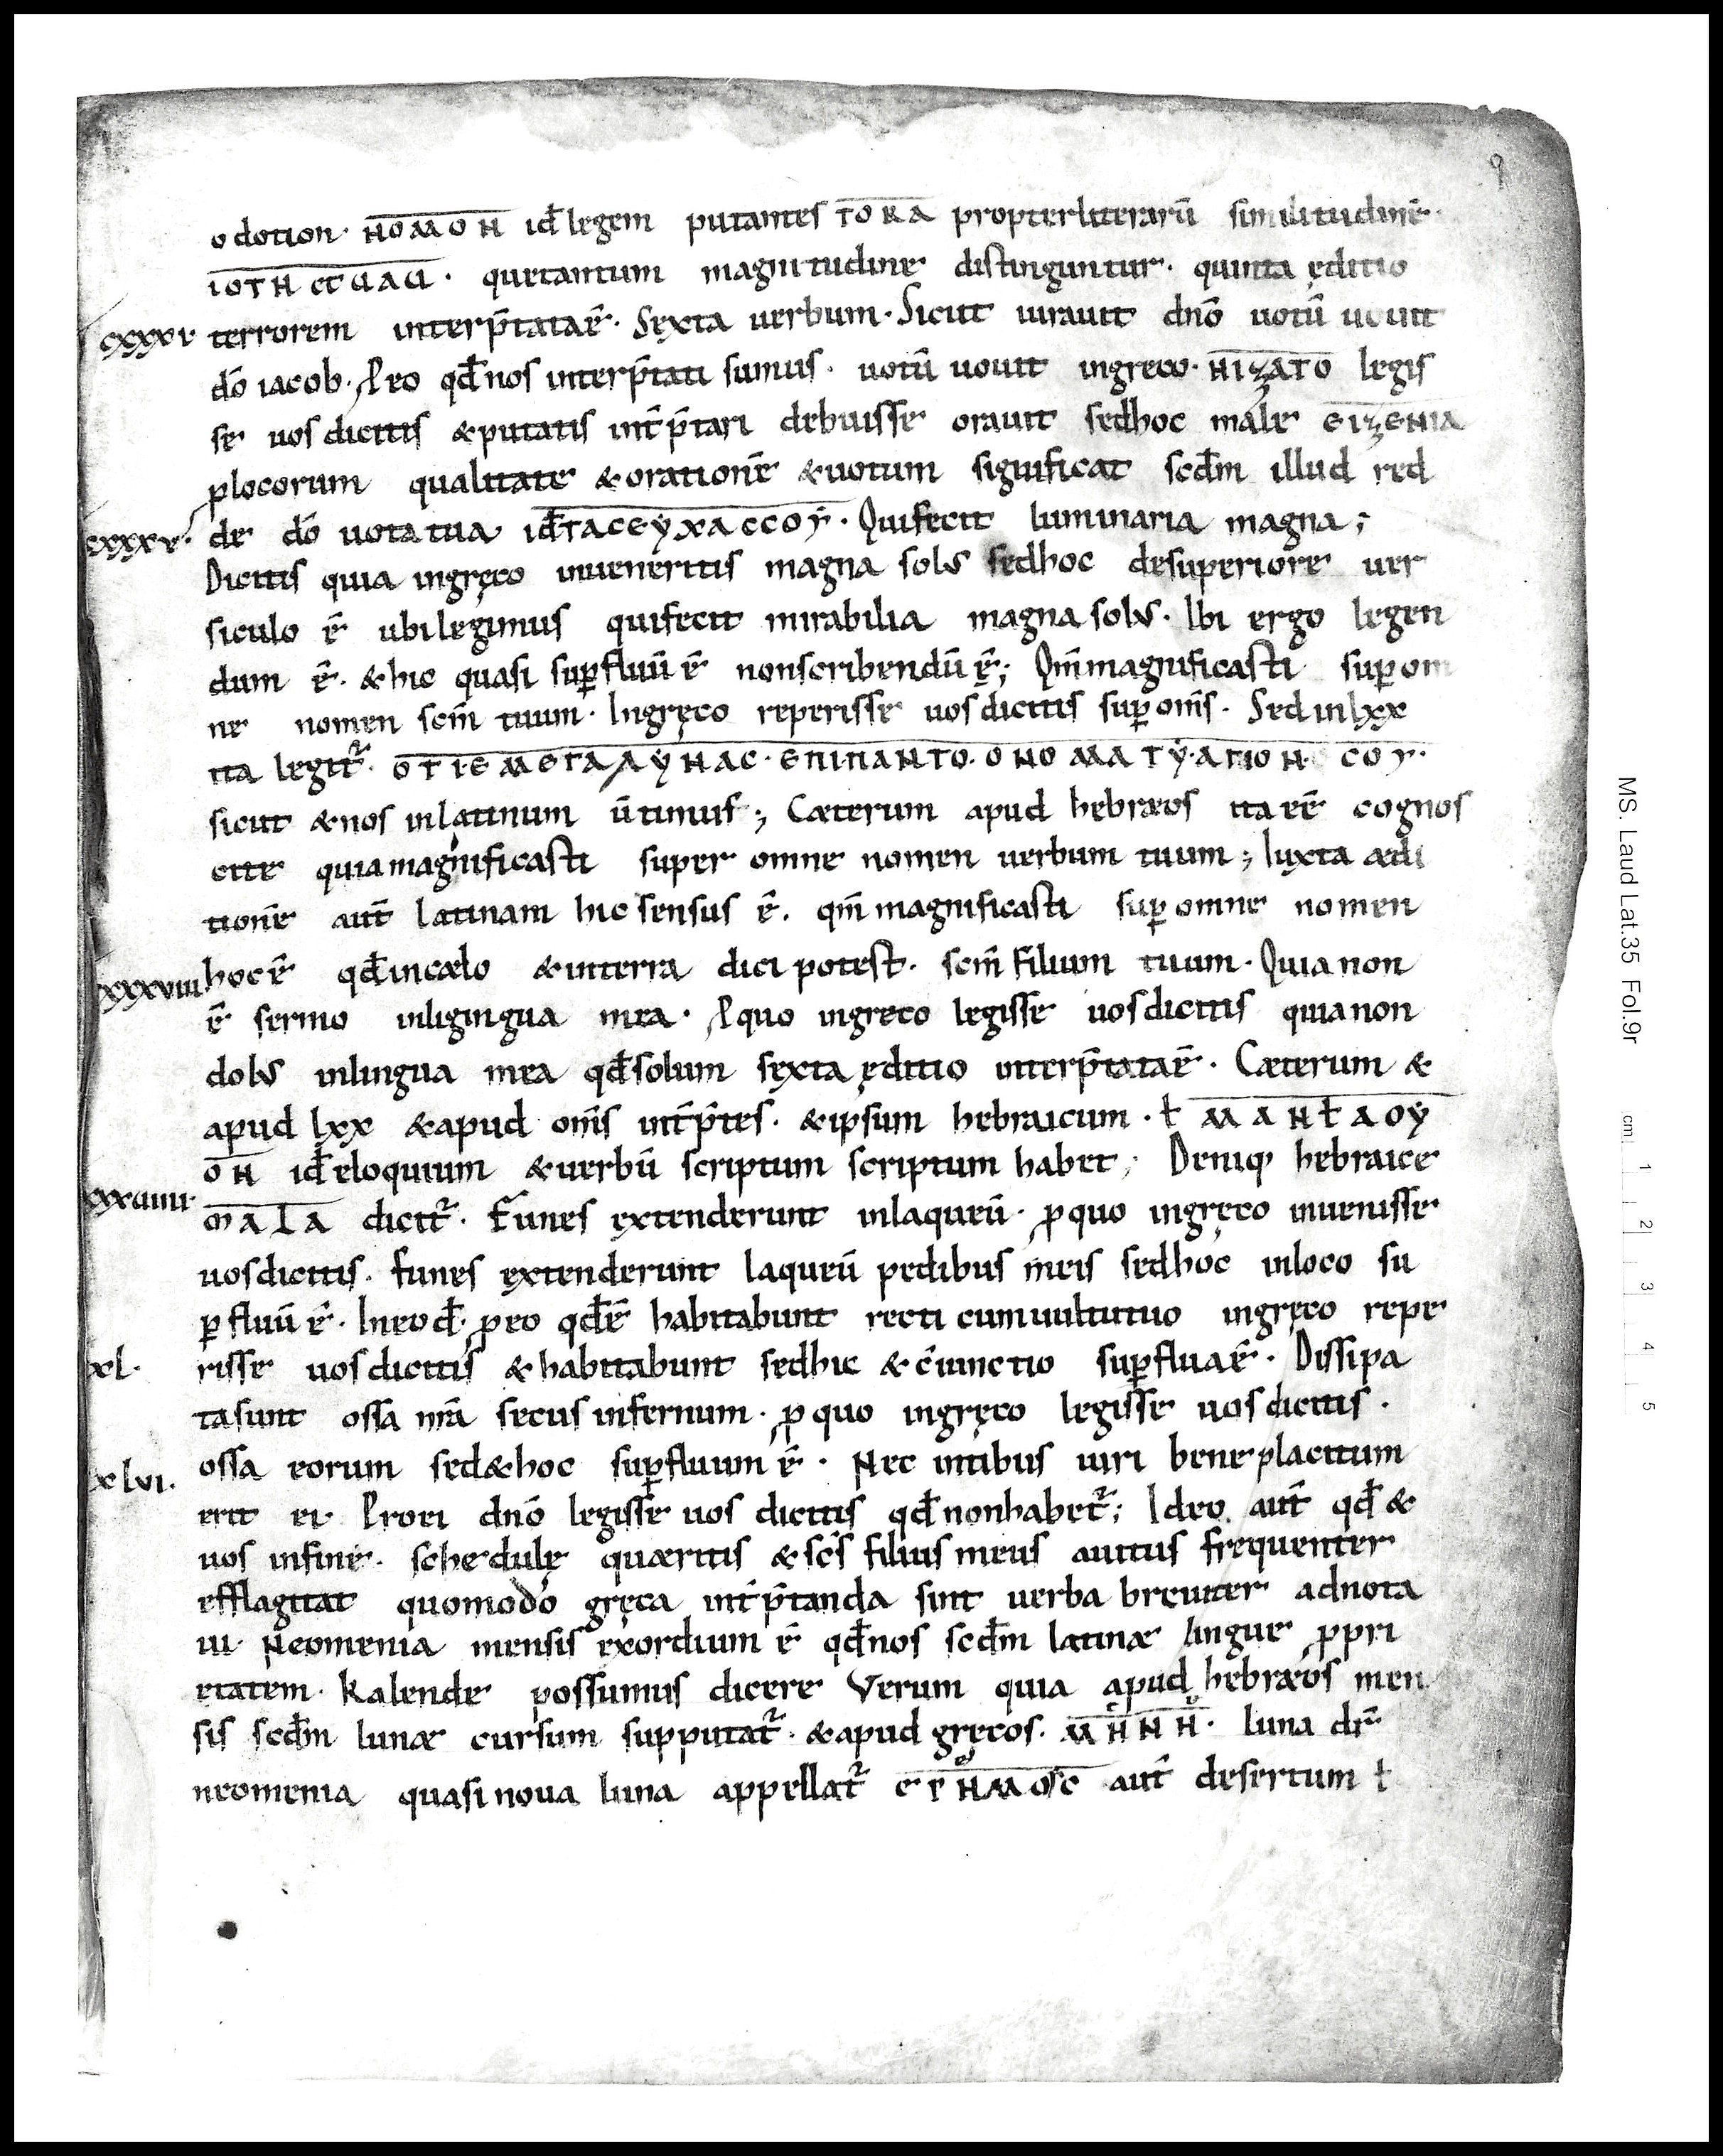 9
odotion· ΝΟΜΟΝ id̄ legem putantes ΤΟRΑ propter literarū similitudinē·
ΙΟΤΗ et UAU· que tantum magnitudine distinguntur· quinta ęditio
cxxxv terrorem interp̄tata ē· Sexta uerbum· Sicut iurauit dn̄o uotū uouit
dō iacob· Pro eo qd̄ nos interp̄tati sumus· uotū uouit in greco· ΗΙΖΑΤΟ legis
se uos dicitis & putatis int̄p̄tari debuisse orauit sed hoc male ΕΙΖΕΗΙΑ
p locorum qualitate & orationē & uotum significat scd̄m illud red
cxxxv· de dō uota tua id̄ ΤΑC ΕΥΧΑC CΟΥ· Qui fecit luminaria magna;
Dicitis quia in gręco inueneritis magna solus sed hoc de superiore uer
siculo ē ubi legimus qui fecit mirabilia magna solus· Ibi ergo legen
dum ē· & hic quasi supfluū ē non scribendū ę̄; Qm̄ magnificasti sup om
ne nomen scm̄ tuum· In gręco reperisse uos dicitis sup om̄s· Sed in lxx
ita legit̄· ΟΤΙ ΕΜΕΓΑΛΥΝΑC· ΕΠΙ ΠΑΝΤΟ· ΟΝΟΜΑ ΤΥ· ΑΓΙΟΝ· CΟΥ·
sicut & nos in latinum ūtimus; Cæterum apud hebræos ita eē cognos
cite quia magnificasti super omne nomen uerbum tuum; Iuxta ædi
tionē aut̄ latinam hic sensus ē· qm̄ magnificasti sup omne nomen
xxxviii hoc ē qd̄ in cælo & in terra dici potest· scm̄ filium tuum· Quia non
ē sermo in ligingua mea· P quo in greco legisse uos dicitis quia non
dolus in lingua mea qd̄ solum sexta ęditio interp̄tata ē· Cæterum &
apud lxx & apud om̄s int̄p̄tes· & ipsum hebraicum· ƚ ΜΑΝƚΑΟΥ
ΟΝ id̄ eloquium & uerbū scriptum scriptum habet; Deniq hebraice
mala dicit̄· Funes extenderunt in laqueū· p quo in gręco inuenisse
uos dicitis· funes extenderunt laqueū pedibus meis sed hoc in loco su
pfluū ē· In eo d̄· p eo qd̄ ē habitabunt recti cum uultu tuo in gręco repe
xl· risse uos dicitis & habitabunt sed hic & c̄iunctio supflua ē· Dissipa
ta sunt ossa nr̄a secus infernum· p quo in gręco legisse uos dicitis·
xlvi· ossa eorum sed & hoc supfluum ē· Nec intibus uiri beneplacitum
erit ei· Pro ei dn̄o legisse uos dicitis qd̄ non habet̄; Ideo aut̄ qd̄ &
uos in fine· schedulę quæritis & sc̄s filius meus auitus frequenter
efflagitat quomodo gręca int̄p̄tanda sint uerba breuiter adnota
ui· Neomenia mensis exordium ē qd̄ nos scd̄m latinæ lingue ppri
etatem· kalende possumus dicere Verum quia apud hebræos men
sis scd̄m lunæ cursum supputat̄· & apud gręcos· ΜΗΝΗ· luna dr̄
neomenia quasi noua luna appellat̄ ΕΡΗΜΟC aut̄ desertum ƚ
MS. Laud Lat.35 Fol.9r
cm 1 2 3 4 5